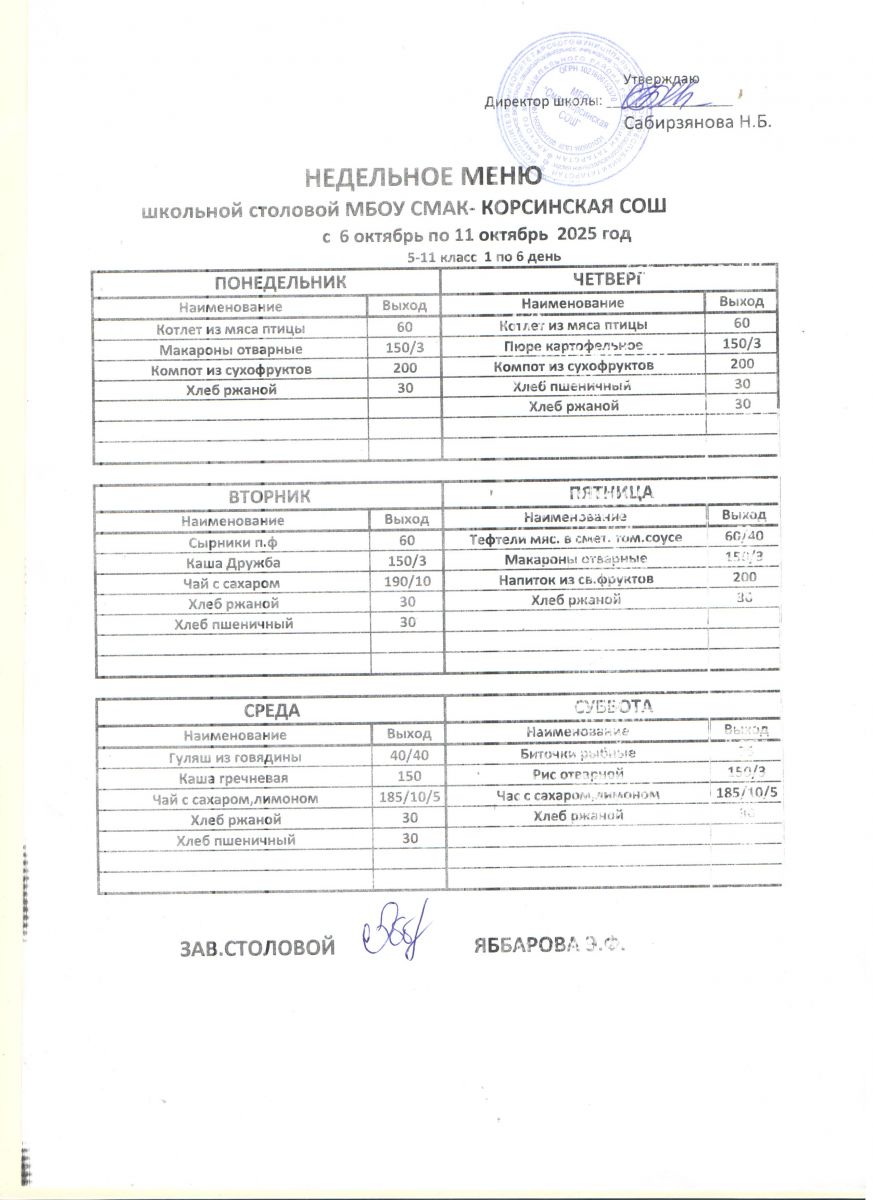 Утверждаю
Директор школы:
Сабирзянова Н.Б.
НЕДЕЛЬНОЕ МЕНЮ
школьной столовой МБОУ СМАК- КОРСИНСКАЯ СОШ
с 6 октябрь по 11 октябрь 2025 год
5-11 класс 1 по 6 день
ПОНЕДЕЛЬНИК
Наименование Выход
Котлет из мяса птицы 60
Макароны отварные 150/3
Компот из сухофруктов 200
Хлеб ржаной 30
ЧЕТВЕРГ
Наименование Выход
Котлет из мяса птицы 60
Пюре картофельное 150/3
Компот из сухофруктов 200
Хлеб пшеничный 30
Хлеб ржаной 30
ВТОРНИК
Наименование Выход
Сырники п.ф 60
Каша Дружба 150/3
Чай с сахаром 190/10
Хлеб ржаной 30
Хлеб пшеничный 30
ПЯТНИЦА
Наименование Выход
Тефтели мяс. в смет. том.соусе 60/40
Макароны отварные 150/3
Напиток из св.фруктов 200
Хлеб ржаной 30
СРЕДА
Наименование Выход
Гуляш из говядины 40/40
Каша гречневая 150
Чай с сахаром,лимоном 185/10/5
Хлеб ржаной 30
Хлеб пшеничный 30
СУББОТА
Наименование Выход
Биточки рыбные
Рис отварной 150/3
Час с сахаром,лимоном 185/10/5
Хлеб ржаной
ЗАВ.СТОЛОВОЙ ЯББАРОВА Э.Ф.